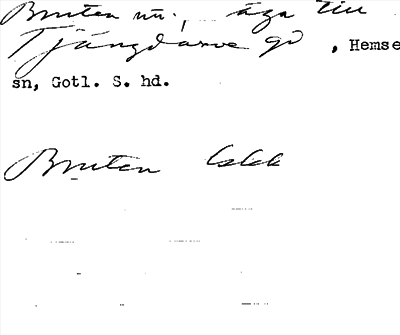 Bruten mn., äga till
Tjängdarve gd, Hemse
sn, Gotl. S. hd.
Bruten